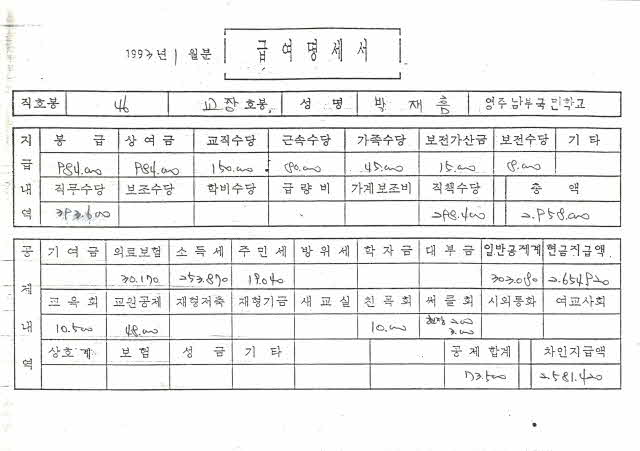 1993년 1월분 급여명세서
직호봉 46 교장호봉 성명 박재흠 영주남부국민학교
지급내역
봉급 상여금 교직수당 근속수당 가족수당 보전가산금 보전수당 기타
984.000 984.000 150.000 80.000 45.000 15.000 8.000
직무수당 보조수당 학비수당 급량비 가계보조비 직책수당 총액
393.600 298.400 2.958.000
공제내역
기여금 의료보험 소득세 주민세 방위세 학자금 대부금 일반공제계 현금지급액
30.170 253.870 19.040 303.080 2.654.920
교육회 교원공제 재형저축 재형기금 새교실 친목회 써클회 시외통화 여교사회
10.500 48.000 10.000 3.000
상호계 보험 성금 기타 공제합계 차인지급액
73.500 2.581.420